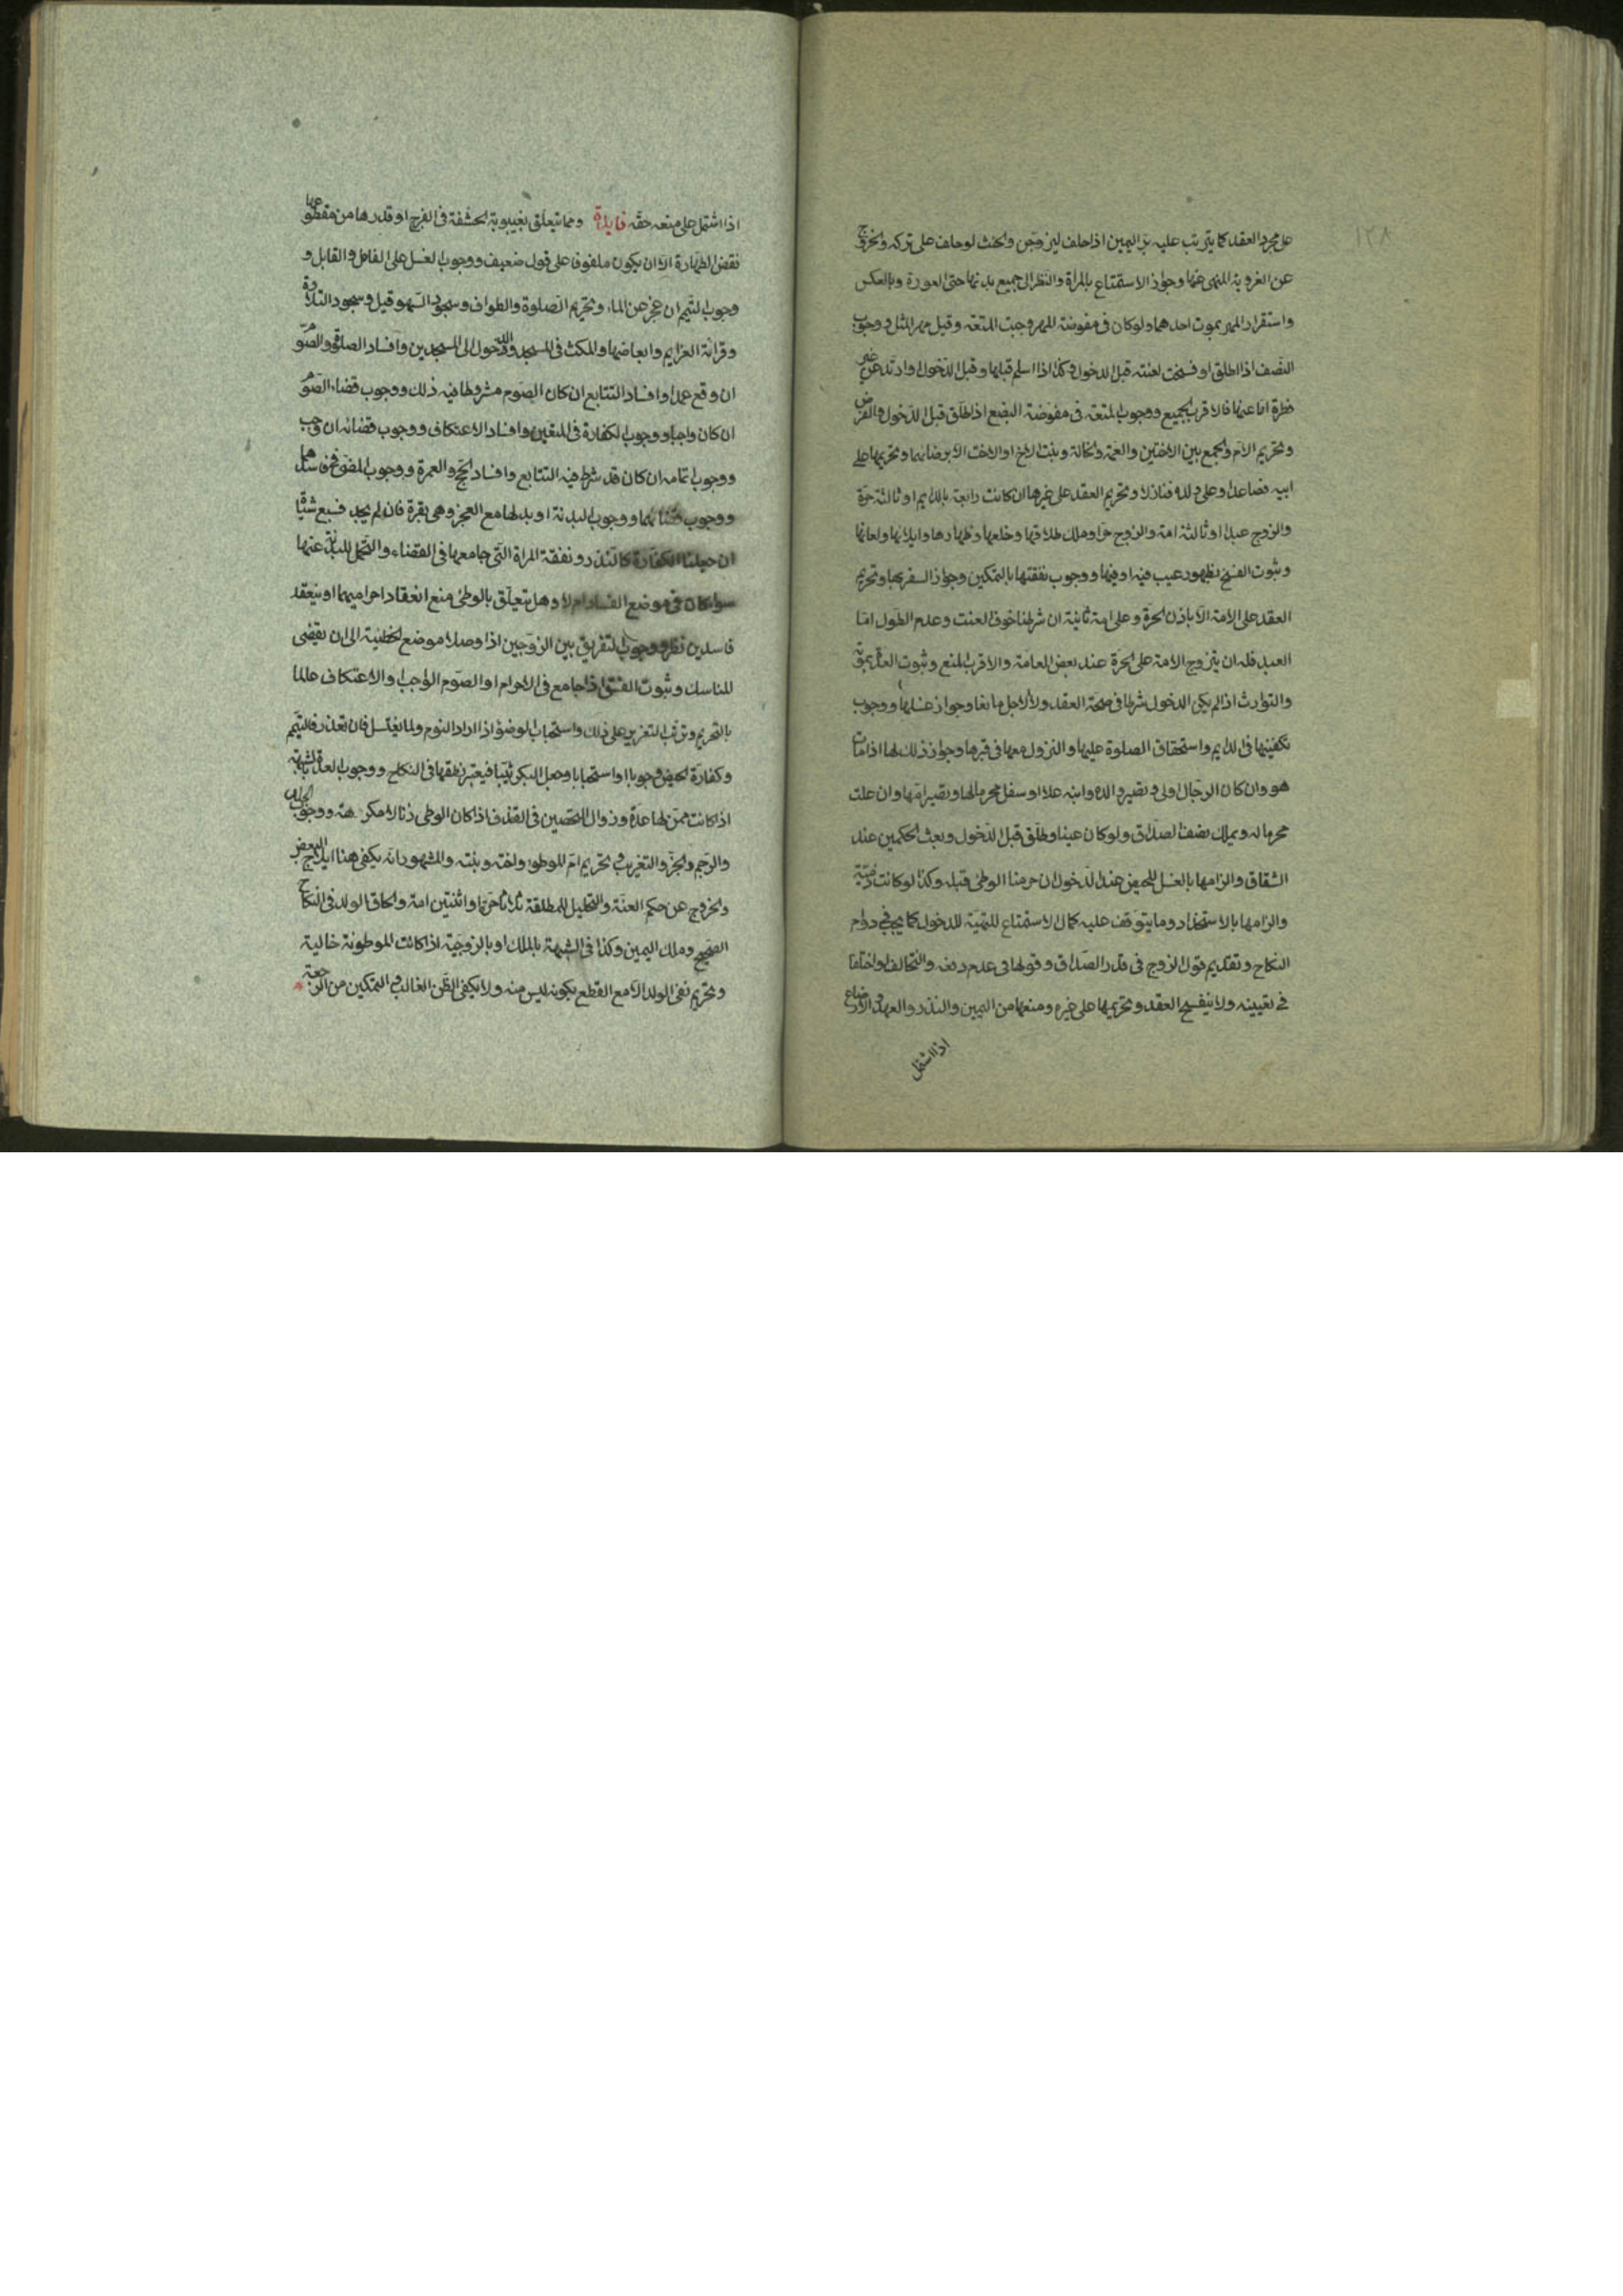 ١٢٨
على مجرد العقد كما يترتب عليه بر اليمين اذا حلف ليزوجن والحنث لو حلف على تركه والخروج
عن العزوبة المنهى عنها وجواز الاستمتاع بالمراة والنظر الى جميع بدنها حتى العورة وبالعكس
واستقرار المهر بموت احدهما ولو كان فى مفوضة المهر وجبت المتعة وقيل مهر المثل ووجوب
النصف اذا طلق او فسخت لعنته قبل الدخول وكذا اذا اسلم قبلها وقبل الدخول او ارتد عن غير
فطرة اما عنها فالاقرب الجميع ووجوب المتعة فى مفوضة البضع اذا طلق قبل الدخول والفرض
وتحريم الام والجمع بين الاختين والعمة والخالة وبنت الاخ او الاخت الا برضائهما وتحريمها على
ابيه فصاعدا وعلى ولده فنازلا وتحريم العقد على غيرها ان كانت رابعة بالدايم او ثالثة حرة
والزوج عبدا او ثالثة امة والزوج حرا وملك طلاقها وخلعها وظهارها وايلائها ولعانها
وثبوت الفسخ بظهور عيب فيه او فيها ووجوب نفقتها بالتمكين وجواز السفر بها وتحريم
العقد على الامة الا باذن الحرة وعلى امة ثانية ان شرطنا خوف العنت وعدم الطول اما
العبد فله ان يتزوج الامة على الحرة عند بعض العامة والاقرب المنع وثبوت العدة بموته
والتوارث اذا لم يكن الدخول شرطا فى صحة العقد ولا لاجل مانعا وجواز غسلها ووجوب
تكفينها فى الدايم واستحقاق الصلوة عليها والنزول معها فى قبرها وجواز ذلك لها اذا مات
هو وان كان الرجال اولى وتصير والده وابنه علا او سفل محرما لها وتصير امها وان علت
محرما له ويملك نصف الصداق ولو كان عينا وطلق قبل الدخول وبعث الحكمين عند
الشقاق والزامها بالغسل للحيض عند الدخول ان حرمنا الوطى قبله وكذا لو كانت ذمية
والزامها بالاستحداد وما يتوقف عليه كمال الاستمتاع للتهيئة للدخول كما يجب فى دوام
النكاح وتقديم قول الزوج فى قدر الصداق وقولها فى عدم دفعه والتحالف لو اختلفا
فى تعيينه ولا ينفسخ العقد وتحريمها على غيره ومنعها من اليمين والنذر والعهد والارضاع
اذا اشتمل
اذا اشتمل على منعه حقه فايدة ومما يتعلق بغيبوبة الحشفة فى الفرج او قدرها من مقطوعها
نقض الطهارة الا ان يكون ملفوفا على قول ضعيف ووجوب الغسل على الفاعل والقابل و
وجوب التيمم ان عجز عن الماء وتحريم الصلوة والطواف وسجود السهو قيل وسجود التلاوة
وقرائة العزايم وابعاضها والمكث فى المسجد والدخول الى المسجدين وافساد الصلوة والصوم
ان وقع عمدا وافساد التتابع ان كان الصوم مشروطا فيه ذلك ووجوب قضاء الصوم
ان كان واجبا ووجوب الكفارة فى المتعين وافساد الاعتكاف ووجوب قضائه ان وجب
ووجوب اتمامه ان كان قد شرط فيه التتابع وافساد الحج والعمرة ووجوب المضى فى فاسدهما
ووجوب قضائهما ووجوب البدنة او بدلها مع العجز وهى بقرة فان لم يجد فسبع شياة
ان جعلنا الكفارة كالنذر ونفقة المراة التى جامعها فى القضاء والتحمل للبدنة عنها
سوا كان فى موضع الفساد ام لا وهل يتعلق بالوطى منع انعقاد احراميهما او ينعقد
فاسدين نظر ووجوب التفريق بين الزوجين اذا وصلا موضع الخطيئة الى ان يقضى
المناسك وثبوت الفسق اذا جامع فى الاحرام او الصوم الواجب والاعتكاف عالما
بالتحريم وترتب التعزير على ذلك واستحباب الوضوء اذا اراد النوم ولما يغتسل فان تعذر فالتيمم
وكفارة الحيض وجوبا او استحبابا وجعل البكر ثيبا فيعتبر نطقها فى النكاح ووجوب العدة بالشبهة
اذا كانت ممن لها عدة وزوال التحصين فى القذف اذا كان الوطى زنا لا مكرهة ووجوب الجلد
والرجم والجز والتغريب وتحريم ام الموطوء واخته وبنته والمشهور انه يكفى هنا ايلاج البعض
والخروج عن حكم العنة والتحليل للمطلقة ثلاثا حرة او اثنتين امة والحاق الولد فى النكاح
الصحيح وملك اليمين وكذا فى الشبهة بالملك او بالزوجية اذا كانت الموطوئة خالية
وتحريم نفى الولد الا مع القطع بكونه ليس منه ولا يكفى الظن الغالب والتمكين من الرجعة